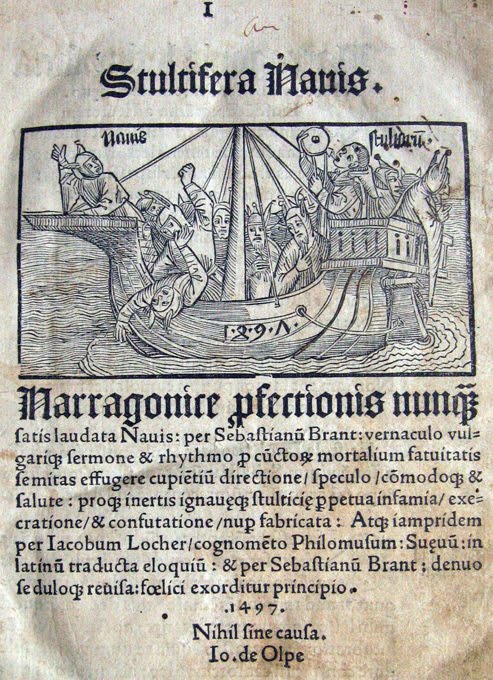 I
Stultifera Nauis.
Nauis stultorū.
.1.4.9.7.
Narragonice ꝓfectionis nunqȝ
satis laudata Nauis: per Sebastianū Brant: vernaculo vul-
gariqȝ sermone & rhythmo ꝓ cūctoꝝ mortalium fatuitatis
semitas effugere cupiētiū directione/speculo/cōmodoqȝ &
salute: proqȝ inertis ignaueqȝ stulticię ꝑpetua infamia/exe-
cratione/& confutatione/nuꝑ fabricata: Atqȝ iampridem
per Iacobum Locher/cognomēto Philomusum: Sueuū: in
latinū traducta eloquiū: & per Sebastianū Brant: denuo
seduloqȝ reuisa: fœlici exorditur principio.
.1497.
Nihil sine causa.
Io. de Olpe